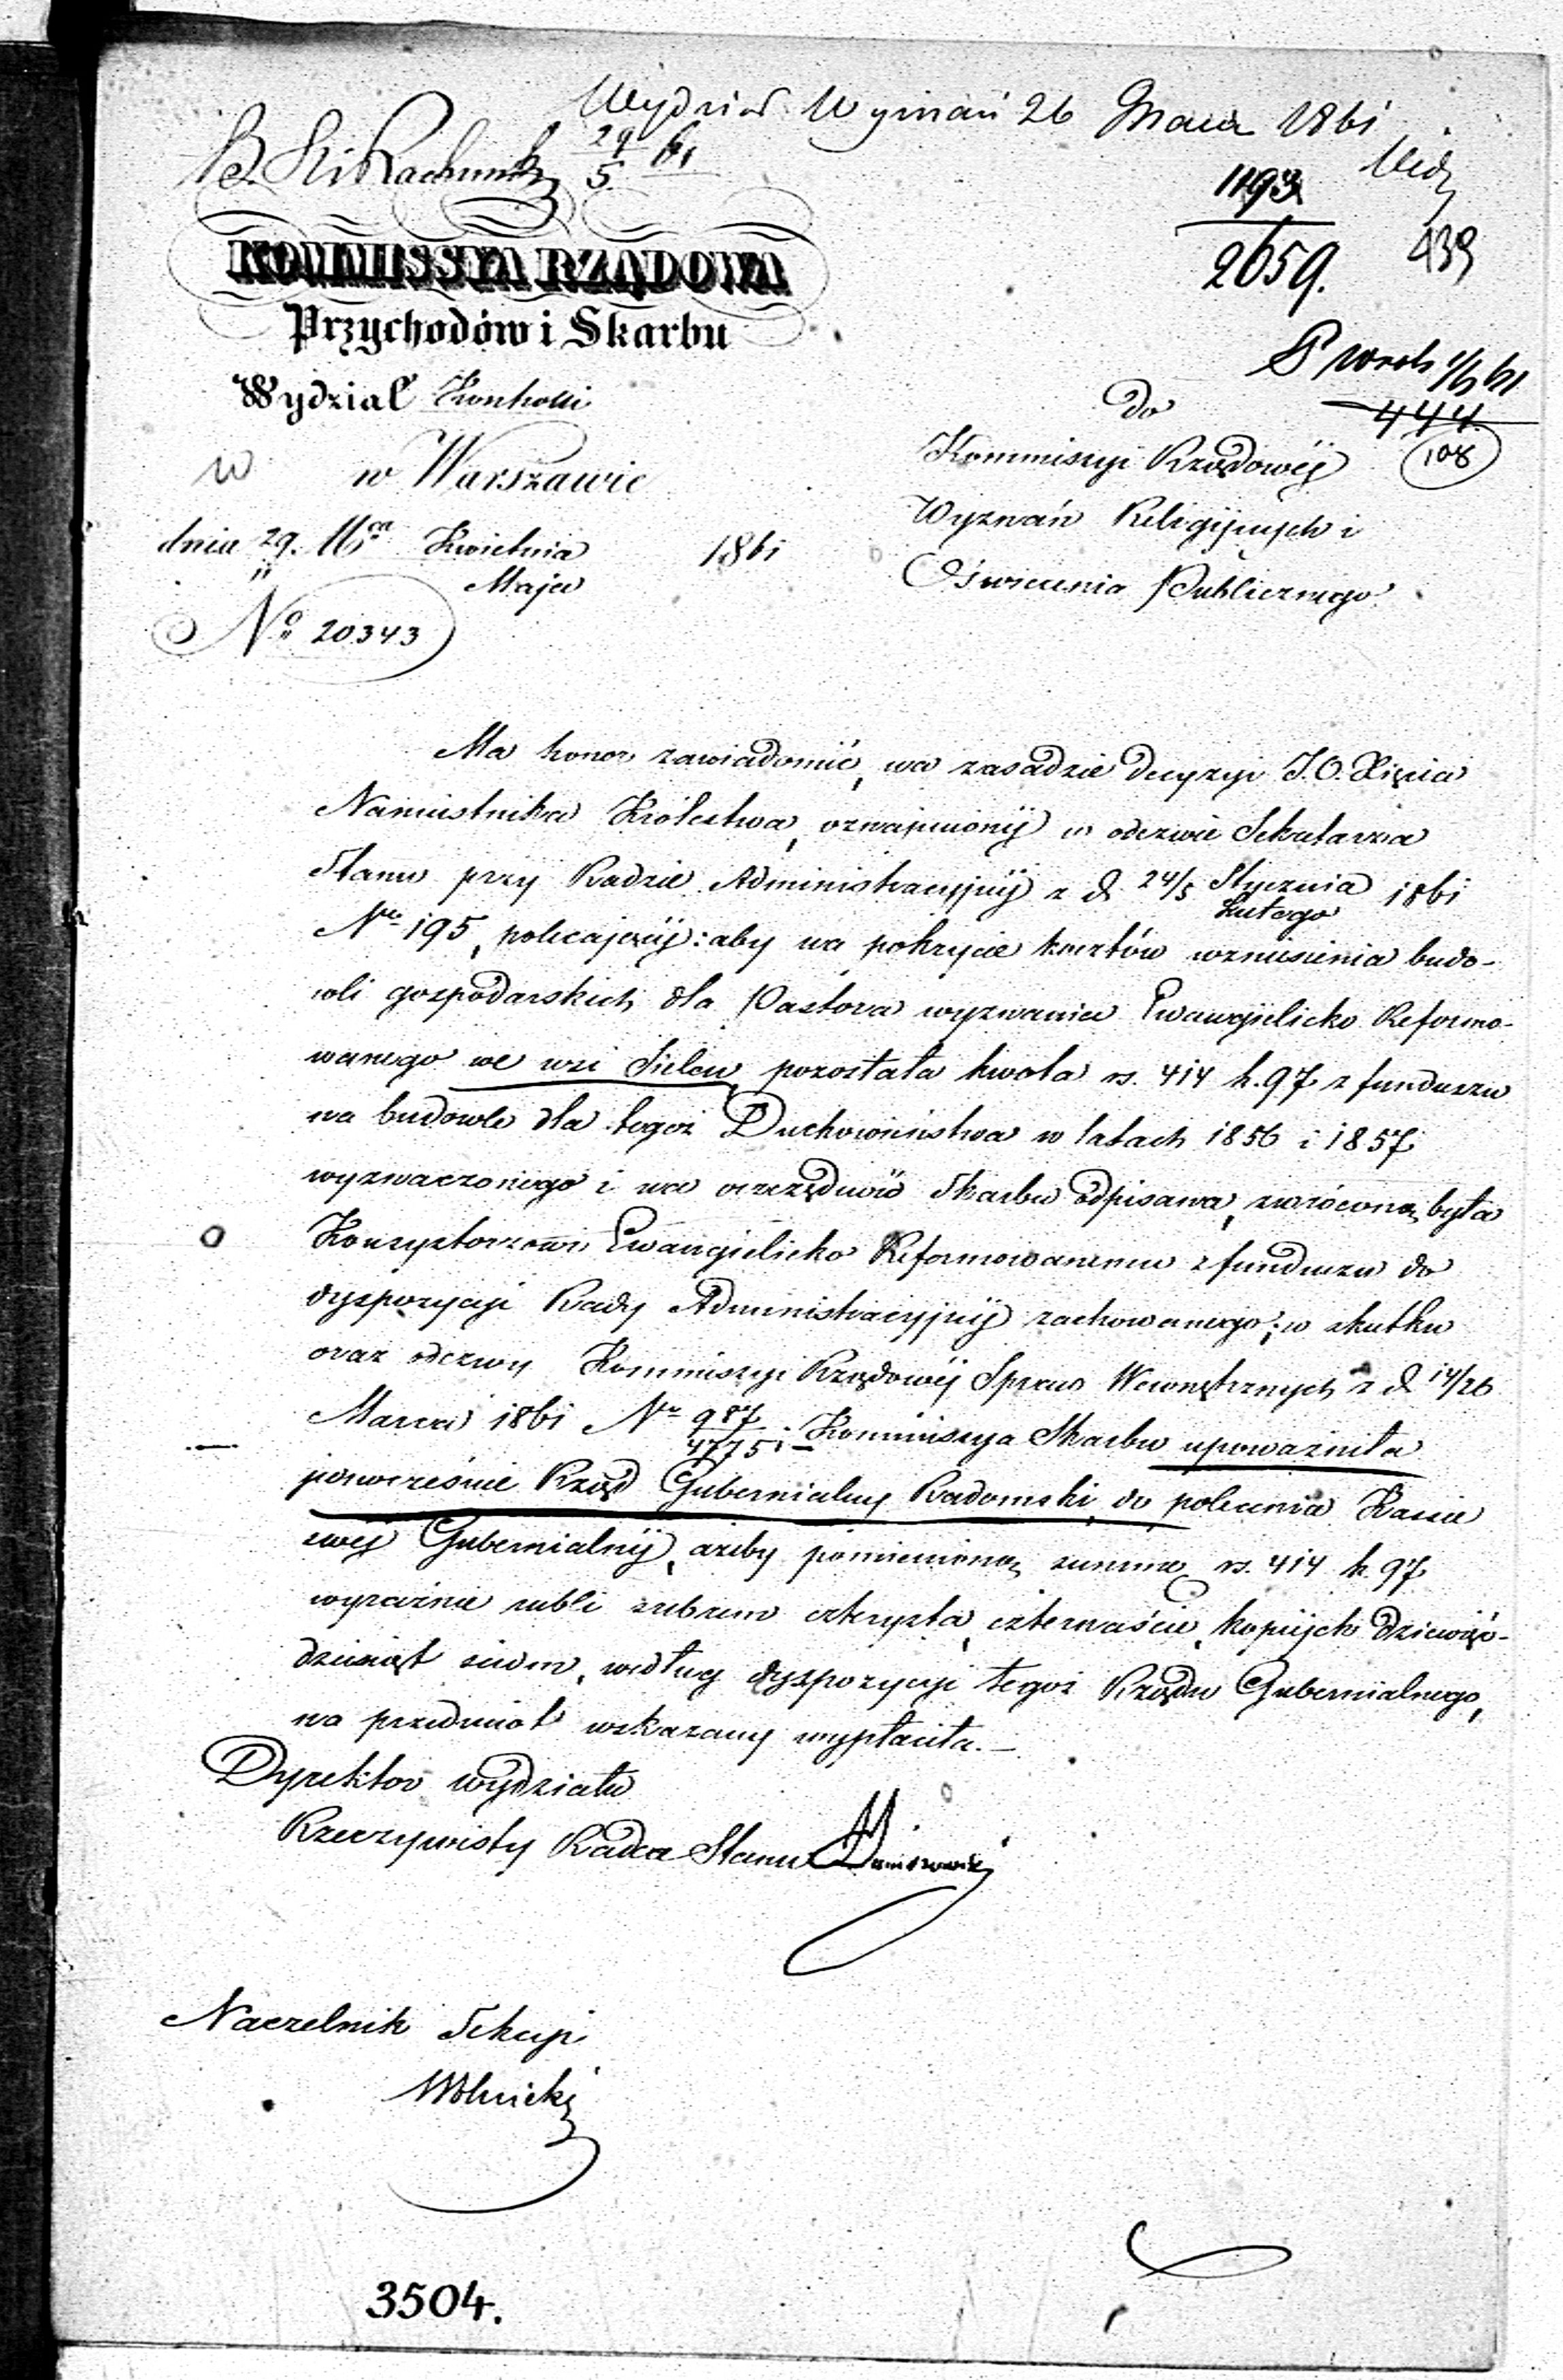 Wydział Wyznań 26 Maja 1861
29/5 61
1193
2659.
439
KOMMISSYA RZĄDOWA
Przychodów i Skarbu
Wydział Kontrolli
w Warszawie
dnia 29. Mca Kwietnia 1861
11 Maja
No 20343
444
108
do
Kommissyi Rządowéj
Wyznań Religijnych i
Oświecenia Publicznego
Ma honor zawiadomić, na zasadzie decyzyi J.O. Xięcia
Namiestnika Królestwa, oznajmionéj w odezwie Sekretarza
Stanu przy Radzie Administracyjnéj z d. 24/5 Stycznia/Lutego 1861
Nr 195, polecającéj: aby na pokrycie kosztów wzniesienia budo-
wli gospodarskich dla Pastora wyznania Ewangielicko Reformo-
wanego we wsi Sielcu, pozostała kwota rs. 414 k. 97 z funduszu
na budowle dla tegoż Duchowieństwa w latach 1856 i 1857
wyznaczonego i na oszczędność Skarbu odpisana, zwróconą była
Konsystorzowi Ewangielicko Reformowanemu z funduszu do
dyspozycyi Rady Administracyjnéj zachowanego; w skutku
oraz odezwy Kommissyi Rządowéj Spraw Wewnętrznych z d. 14/26
Marca 1861 Nr 987/4775 – Kommissya Skarbu upoważniła
jednocześnie Rząd Gubernialny Radomski, do polecenia Kassie
swéj Gubernialnéj, ażeby pomienioną summę rs. 414 k. 97
wyraźnie rubli srebrem czterysta czternaście, kopiejek dziewięć-
dziesiąt siedm, według dyspozycyi tegoż Rządu Gubernialnego,
na przedmiot wskazany wypłaciła. –
Dyrektor wydziału
Rzeczywisty Radca Stanu
Naczelnik Sekcyi
Wolnicki
3504.